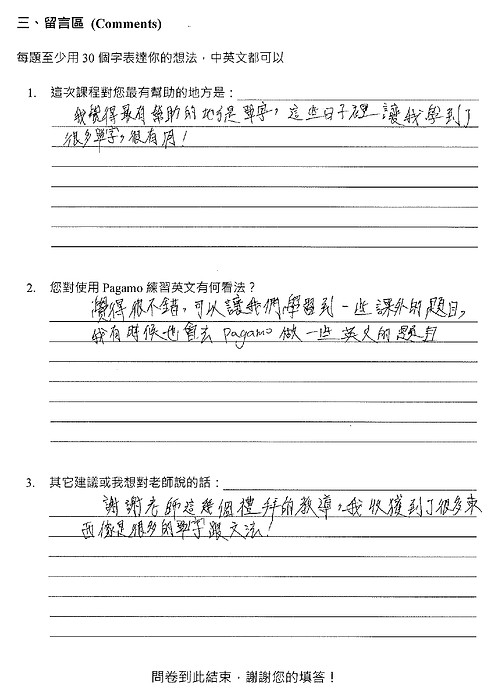 三、留言區 (Comments)
每題至少用 30 個字表達你的想法，中英文都可以
1. 這次課程對您最有幫助的地方是：
我覺得最有幫助的地方是單字，這些日子裡讓我學到了
很多單字，很有用！
2. 您對使用 Pagamo 練習英文有何看法？
覺得很不錯，可以讓我們學習到一些課外的題目，
我有時候也會去 Pagamo 做一些英文的題目
3. 其它建議或我想對老師說的話：
謝謝老師這幾個禮拜的教導，我收獲到了很多東
西像是很多的單字跟文法！
問卷到此結束，謝謝您的填答！